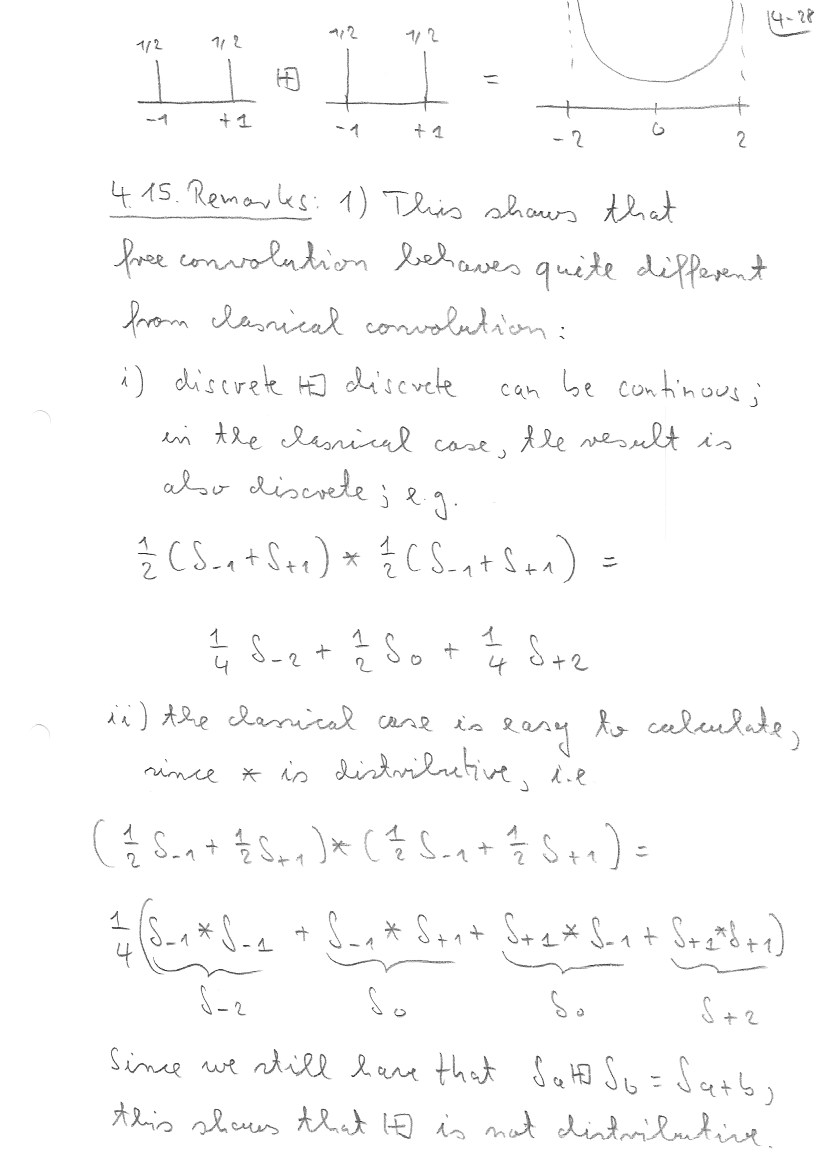 4-28
1/2 1/2 ⊞ 1/2 1/2 =
-1 +1 -1 +1 -2 0 2
4.15. Remarks: 1) This shows that
free convolution behaves quite different
from classical convolution:
i) discrete ⊞ discrete can be continous;
in the classical case, the result is
also discrete; e.g.
1/2 (δ_{-1} + δ_{+1}) * 1/2 (δ_{-1} + δ_{+1}) =
1/4 δ_{-2} + 1/2 δ_0 + 1/4 δ_{+2}
ii) the classical case is easy to calculate,
since * is distributive, i.e
(1/2 δ_{-1} + 1/2 δ_{+1}) * (1/2 δ_{-1} + 1/2 δ_{+1}) =
1/4 (δ_{-1} * δ_{-1} + δ_{-1} * δ_{+1} + δ_{+1} * δ_{-1} + δ_{+1} * δ_{+1})
δ_{-2} δ_0 δ_0 δ_{+2}
Since we still have that δ_a ⊞ δ_b = δ_{a+b},
this shows that ⊞ is not distributive.